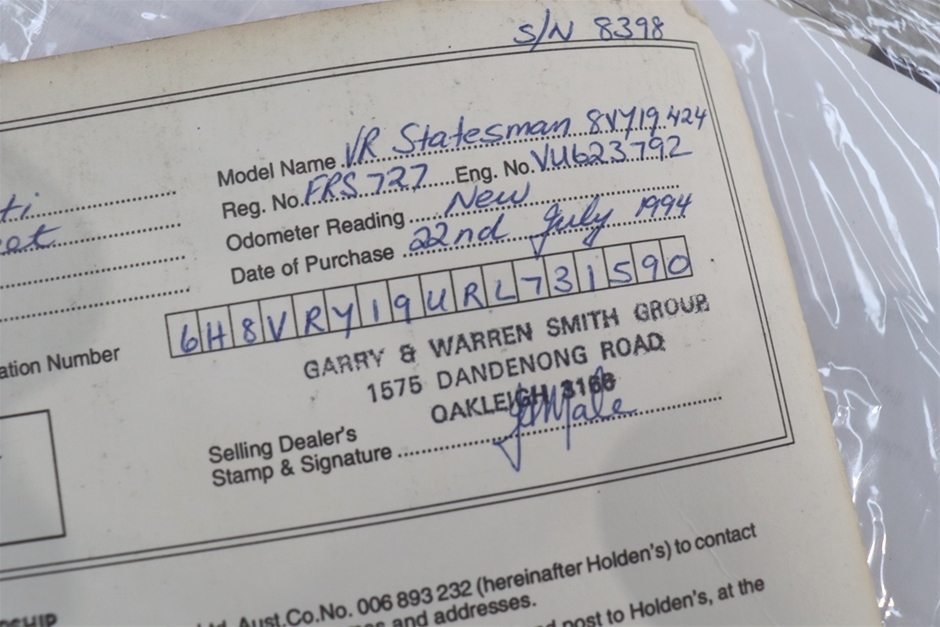 S/N 8398
Model Name VR Statesman 8VY19424
Reg. No. FRS 727 Eng. No. VU623792
Odometer Reading New
Date of Purchase 22nd July 1994
6H8VRY19URL731590
ation Number
GARRY & WARREN SMITH GROUP
1575 DANDENONG ROAD
OAKLEIGH 3166
Selling Dealer's
Stamp & Signature
Ltd. Aust.Co.No. 006 893 232 (hereinafter Holden's) to contact
and addresses.
post to Holden's, at the